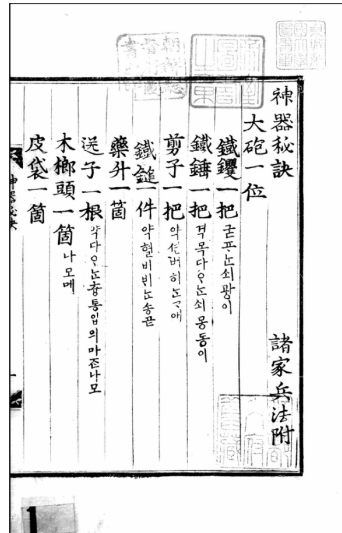 神器秘訣 諸家兵法附
大砲一位
鐵钁一把 굳프ᄂᆞᆫ쇠광이
鐵錘一把 격목다ᄋᆞᄂᆞᆫ쇠몽동이
剪子一把 약션버히ᄂᆞᆫᄀᆞ애
鐵鎚一件 약현비븨ᄂᆞᆫ송곧
藥升一箇
送子一根 약다ᄋᆞᄂᆞᆫ총통입의마ᄌᆞᆫ나모
木榔頭一箇 나모메
皮袋一箇
神器秘訣
1